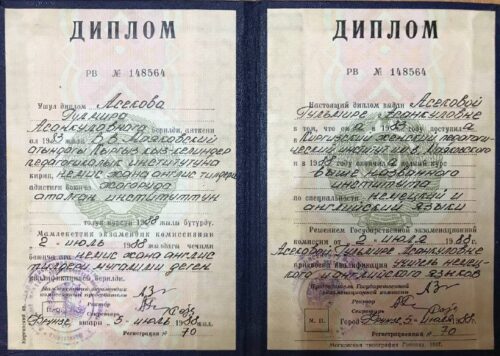 ДИПЛОМ
РВ № 148564
Ушул диплом Асекова
Гулмира
Асанкуловнага берилди, анткени
ал 1983 жылы В.В. Маяковский
атындагы Кыргыз кыз-келиндер
педагогикалык институтуна
кирип, немис жана англис тилдери
адистиги боюнча жогоруда
аталган институттун
толук курсун 1988 жылы бүтүрдү.
Мамлекеттик экзамендик комиссиянын
2 - июль 1988 жылдагы чечими
боюнча немис жана англис
тилдеринин мугалими деген
квалификация берилди.
Ректор
Секретарь
Фрунзе шаары 5 - июль 1988
Регистрация № 70
ДИПЛОМ
РВ № 148564
Настоящий диплом выдан Асековой
Гульмире Асанкуловне
в том, что она в 1983 году поступила в
Киргизский женский педагоги-
ческий институт им. В. Маяковского
и в 1988 году окончила полный курс
выше названного
института
по специальности немецкий и
английский языки
Решением Государственной экзаменационной
комиссии от 2 июля 1988 г.
Асековой Гульмире Асанкуловне
присвоена квалификация учитель немец-
кого и английского языков
Председатель Государственной
экзаменационной комиссии
Ректор
Секретарь
М. П. Город Фрунзе 5 - июля 1988 г.
Регистрационный № 70
Московская типография Гознака. 1987.